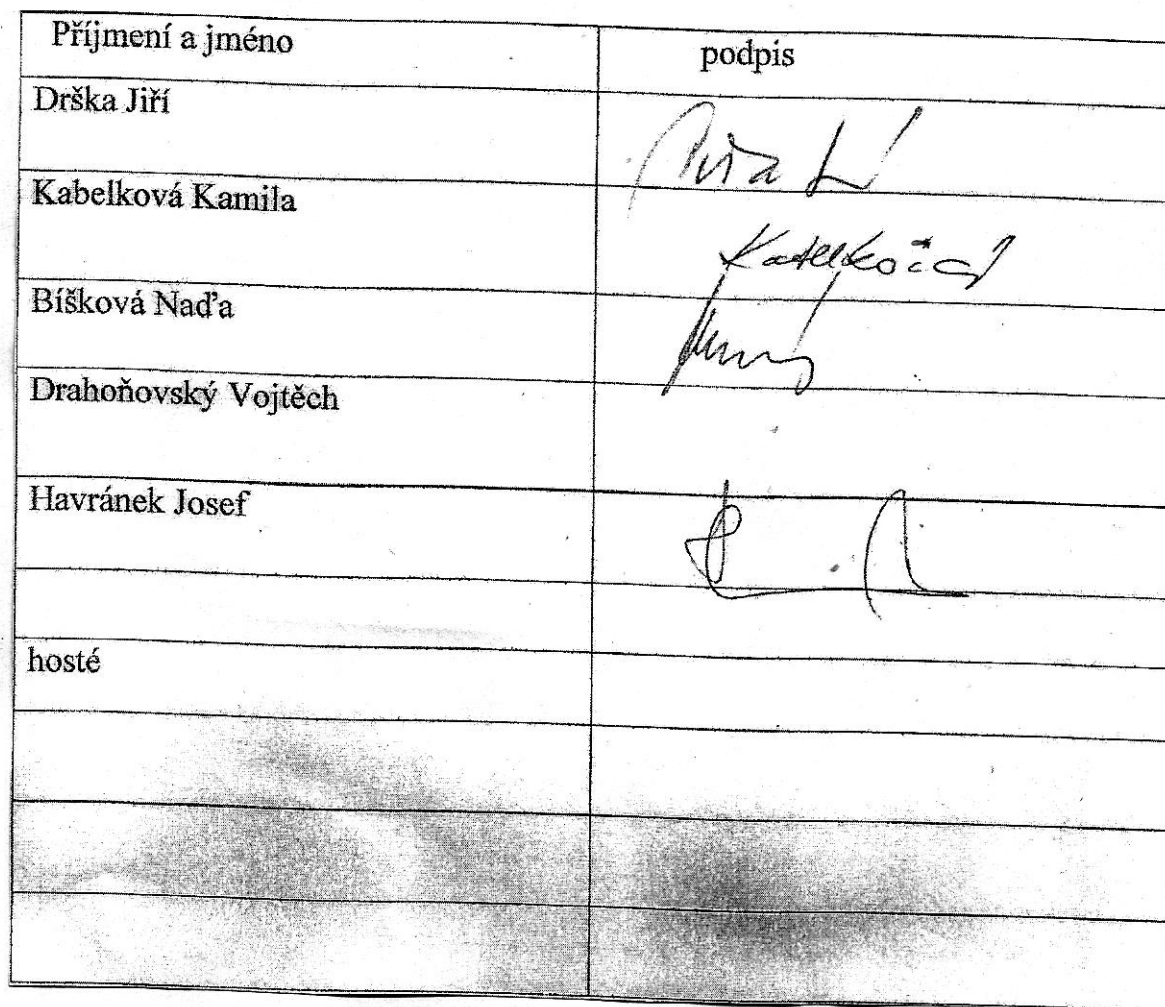 Příjmení a jméno podpis
Drška Jiří
Kabelková Kamila
Bíšková Naďa
Drahoňovský Vojtěch
Havránek Josef
hosté